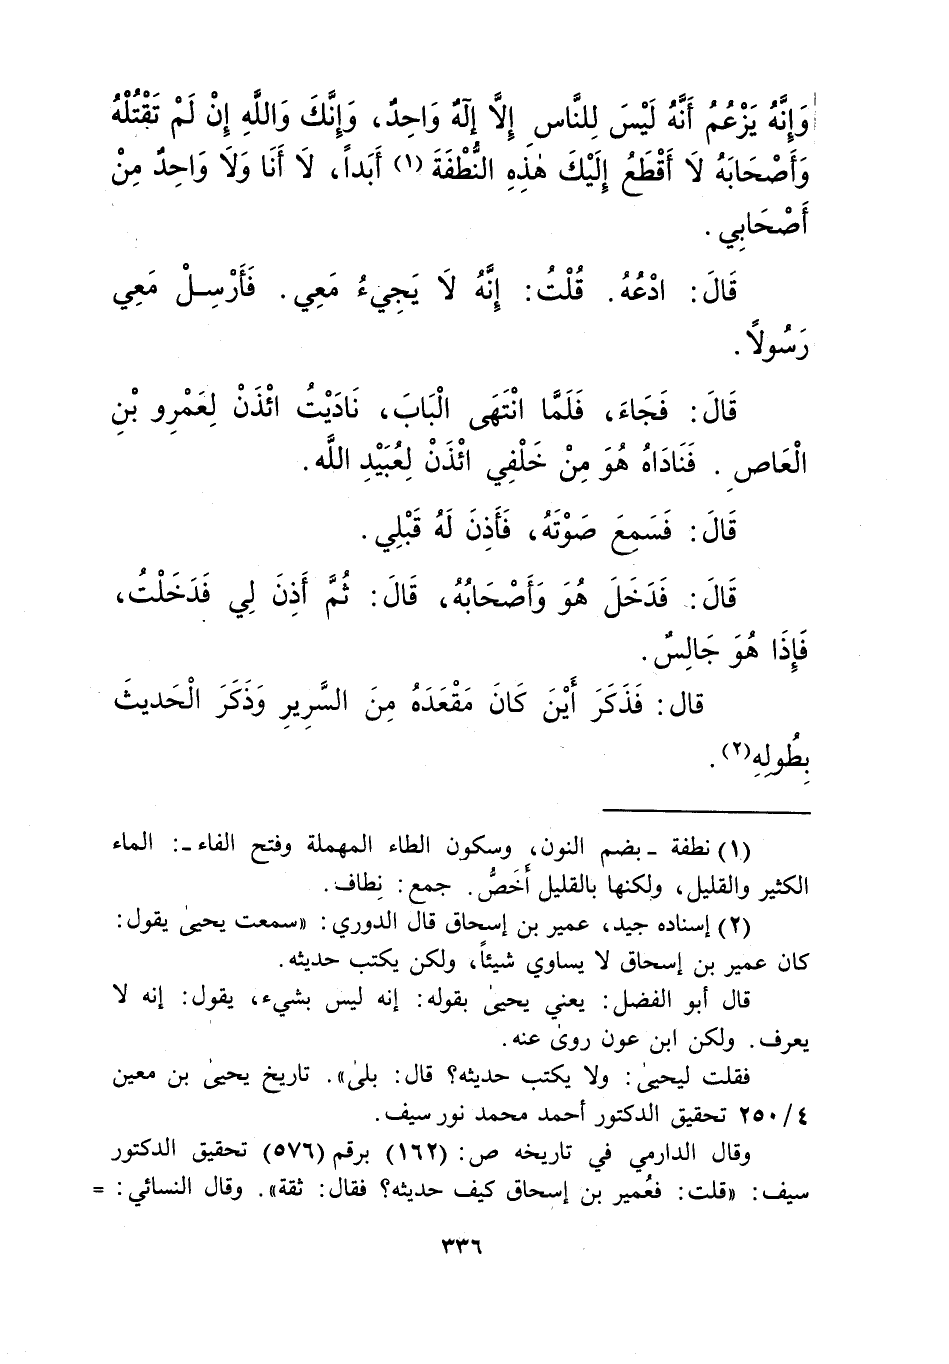 وَإِنَّهُ يَزْعُمُ أَنَّهُ لَيْسَ لِلنَّاسِ إِلَّا إِلَهٌ وَاحِدٌ، وَإِنَّكَ وَاللَّهِ إِنْ لَمْ تَقْتُلْهُ
وَأَصْحَابَهُ لَا أَقْطَعُ إِلَيْكَ هٰذِهِ النُّطْفَةَ (١) أَبَداً، لَا أَنَا وَلَا وَاحِدٌ مِنْ
أَصْحَابِي .
قَالَ: ادْعُهُ. قُلْتُ: إِنَّهُ لَا يَجِيءُ مَعِي. فَأَرْسِلْ مَعِي
رَسُولاً.
قَالَ: فَجَاءَ، فَلَمَّا انْتَهَى الْبَابَ، نَادَيْتُ ائْذَنْ لِعَمْرِو بْنِ
الْعَاصِ . فَنَادَاهُ هُوَ مِنْ خَلْفِي ائْذَنْ لِعُبَيْدِ اللَّه.
قَالَ: فَسَمِعَ صَوْتَهُ، فَأَذِنَ لَهُ قَبْلِي.
قَالَ: فَدَخَلَ هُوَ وَأَصْحَابُهُ، قَالَ: ثُمَّ أَذِنَ لِي فَدَخَلْتُ،
فَإِذَا هُوَ جَالِسٌ.
قال: فَذَكَرَ أَيْنَ كَانَ مَقْعَدَهُ مِنَ السَّرِيرِ وَذَكَرَ الْحَديثَ
بِطُولِهِ(٢).
(١) نطفة ـ بضم النون، وسكون الطاء المهملة وفتح الفاء ـ: الماء
الكثير والقليل، ولكنها بالقليل أَخَصُّ. جمع: نِطاف.
(٢) إسناده جيد، عمير بن إسحاق قال الدوري: «سمعت يحيىٰ يقول:
كان عمير بن إسحاق لا يساوي شيئاً، ولكن يكتب حديثه.
قال أبو الفضل: يعني يحيىٰ بقوله: إنه ليس بشيء، يقول: إنه لا
يعرف. ولكن ابن عون روىٰ عنه.
فقلت ليحيىٰ: ولا يكتب حديثه؟ قال: بلىٰ». تاريخ يحيىٰ بن معين
٤/ ٢٥٠ تحقيق الدكتور أحمد محمد نور سيف.
وقال الدارمي في تاريخه ص: (١٦٢) برقم (٥٧٦) تحقيق الدكتور
سيف: «قلت: فعُمير بن إسحاق كيف حديثه؟ فقال: ثقة». وقال النسائي: =
٣٣٦